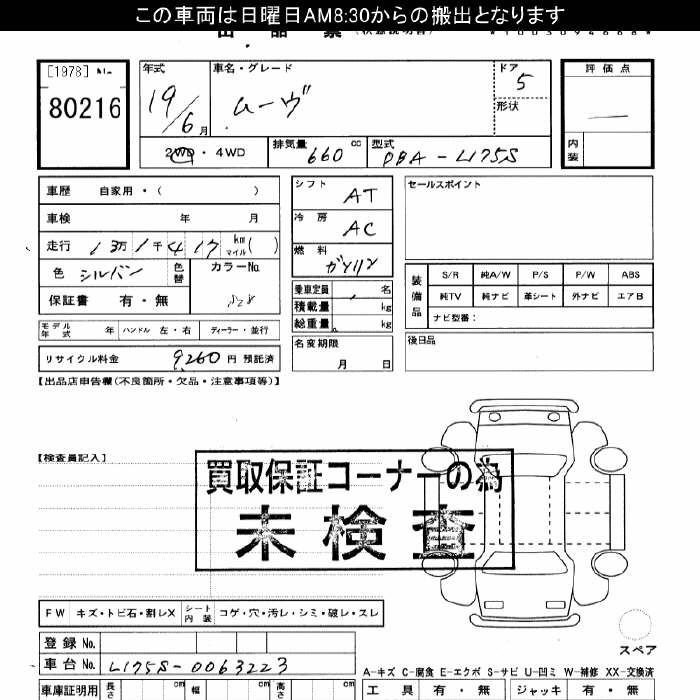 この車両は日曜日AM8:30からの搬出となります
出品票
[1978] No.
80216
年式 19/6月
車名・グレード ムーヴ
ドア 5
形状
評価点
内装
2WD・4WD
排気量 660 cc
型式 DBA-L175S
車歴 自家用・( )
車検 年 月
走行 13万1千417 km マイル( )
色 シルバー 色替 カラーNo.
保証書 有・無
シフト AT
冷房 AC
燃料 ガソリン
乗車定員 名
積載量 kg
総重量 kg
名変期限 月 日
セールスポイント
装備品 S/R 純A/W P/S P/W ABS
純TV 純ナビ 革シート 外ナビ エアB
ナビ型番:
後日品
モデル年式 年 ハンドル 左・右 ディーラー・並行
リサイクル料金 9,260 円 預託済
【出品店申告欄(不良箇所・欠品・注意事項等)】
【検査員記入】
買取保証コーナーの為
未検査
FW キズ・トビ石・割レX シート内装 コゲ・穴・汚レ・シミ・破レ・スレ
登録No.
車台No. L175S-0063223
スペア
A-キズ C-腐食 E-エクボ S-サビ U-凹ミ W-補修 XX-交換済
車庫証明用 長さ cm 幅 cm 高さ cm
工具 有・無 ジャッキ 有・無